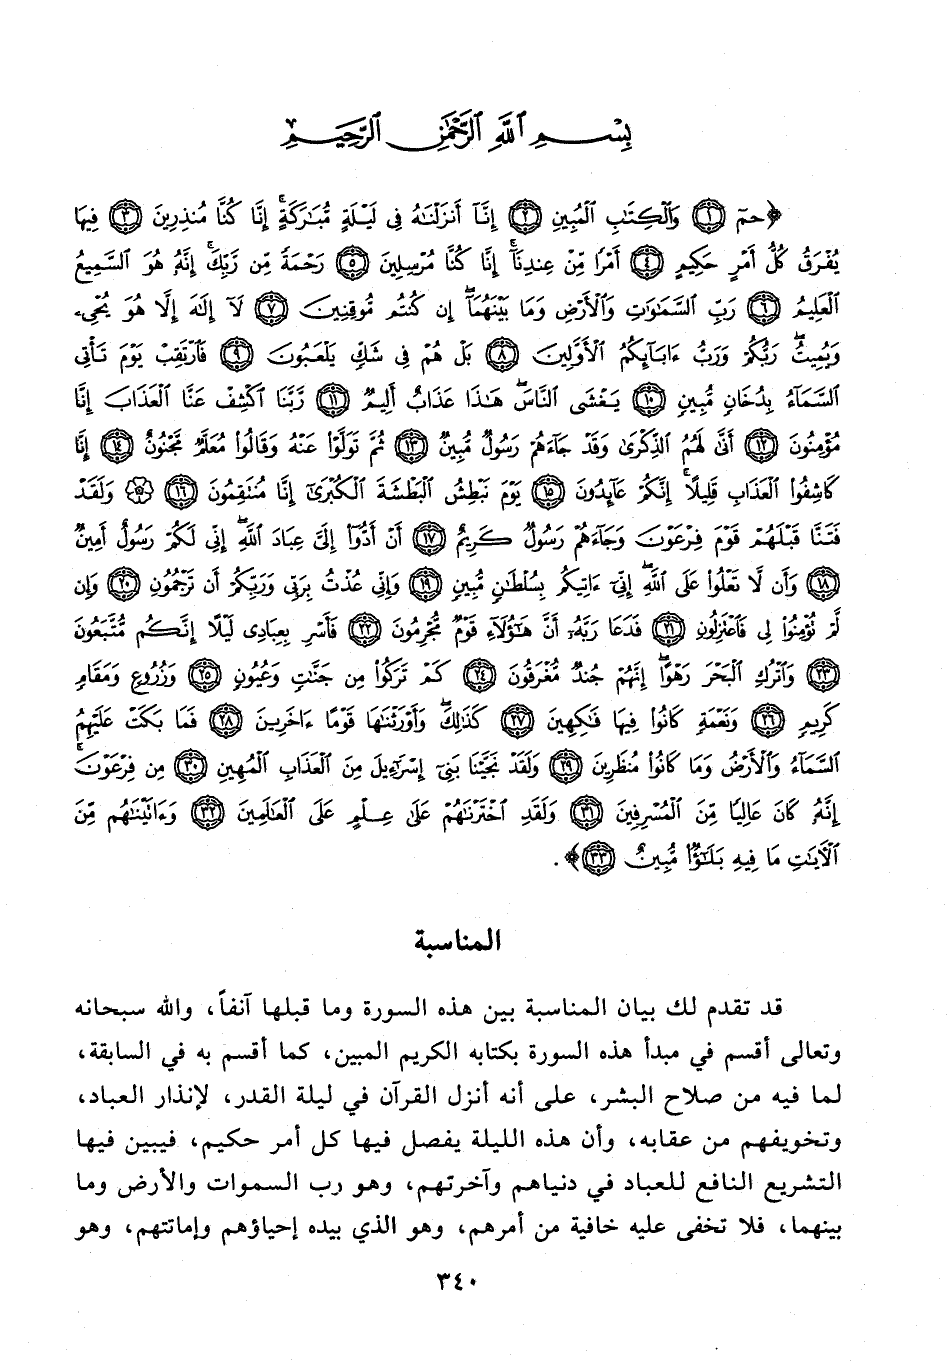 بِسْمِ ٱللَّهِ ٱلرَّحْمَٰنِ ٱلرَّحِيمِ
﴿حمٓ ١ وَٱلْكِتَٰبِ ٱلْمُبِينِ ٢ إِنَّآ أَنزَلْنَٰهُ فِى لَيْلَةٍ مُّبَٰرَكَةٍ ۚ إِنَّا كُنَّا مُنذِرِينَ ٣ فِيهَا
يُفْرَقُ كُلُّ أَمْرٍ حَكِيمٍ ٤ أَمْرًا مِّنْ عِندِنَآ ۚ إِنَّا كُنَّا مُرْسِلِينَ ٥ رَحْمَةً مِّن رَّبِّكَ ۚ إِنَّهُ هُوَ ٱلسَّمِيعُ
ٱلْعَلِيمُ ٦ رَبِّ ٱلسَّمَٰوَٰتِ وَٱلْأَرْضِ وَمَا بَيْنَهُمَآ ۖ إِن كُنتُم مُّوقِنِينَ ٧ لَآ إِلَٰهَ إِلَّا هُوَ يُحْىِۦ
وَيُمِيتُ ۖ رَبُّكُمْ وَرَبُّ ءَابَآئِكُمُ ٱلْأَوَّلِينَ ٨ بَلْ هُمْ فِى شَكٍّ يَلْعَبُونَ ٩ فَٱرْتَقِبْ يَوْمَ تَأْتِى
ٱلسَّمَآءُ بِدُخَانٍ مُّبِينٍ ١٠ يَغْشَى ٱلنَّاسَ ۖ هَٰذَا عَذَابٌ أَلِيمٌ ١١ رَّبَّنَا ٱكْشِفْ عَنَّا ٱلْعَذَابَ إِنَّا
مُؤْمِنُونَ ١٢ أَنَّىٰ لَهُمُ ٱلذِّكْرَىٰ وَقَدْ جَآءَهُمْ رَسُولٌ مُّبِينٌ ١٣ ثُمَّ تَوَلَّوْا۟ عَنْهُ وَقَالُوا۟ مُعَلَّمٌ مَّجْنُونٌ ١٤ إِنَّا
كَاشِفُوا۟ ٱلْعَذَابِ قَلِيلًا ۚ إِنَّكُمْ عَآئِدُونَ ١٥ يَوْمَ نَبْطِشُ ٱلْبَطْشَةَ ٱلْكُبْرَىٰٓ إِنَّا مُنتَقِمُونَ ١٦ ۞ وَلَقَدْ
فَتَنَّا قَبْلَهُمْ قَوْمَ فِرْعَوْنَ وَجَآءَهُمْ رَسُولٌ كَرِيمٌ ١٧ أَنْ أَدُّوٓا۟ إِلَىَّ عِبَادَ ٱللَّهِ ۖ إِنِّى لَكُمْ رَسُولٌ أَمِينٌ
١٨ وَأَن لَّا تَعْلُوا۟ عَلَى ٱللَّهِ ۖ إِنِّىٓ ءَاتِيكُم بِسُلْطَٰنٍ مُّبِينٍ ١٩ وَإِنِّى عُذْتُ بِرَبِّى وَرَبِّكُمْ أَن تَرْجُمُونِ ٢٠ وَإِن
لَّمْ تُؤْمِنُوا۟ لِى فَٱعْتَزِلُونِ ٢١ فَدَعَا رَبَّهُۥٓ أَنَّ هَٰٓؤُلَآءِ قَوْمٌ مُّجْرِمُونَ ٢٢ فَأَسْرِ بِعِبَادِى لَيْلًا إِنَّكُم مُّتَّبَعُونَ
٢٣ وَٱتْرُكِ ٱلْبَحْرَ رَهْوًا ۖ إِنَّهُمْ جُندٌ مُّغْرَقُونَ ٢٤ كَمْ تَرَكُوا۟ مِن جَنَّٰتٍ وَعُيُونٍ ٢٥ وَزُرُوعٍ وَمَقَامٍ
كَرِيمٍ ٢٦ وَنَعْمَةٍ كَانُوا۟ فِيهَا فَٰكِهِينَ ٢٧ كَذَٰلِكَ ۖ وَأَوْرَثْنَٰهَا قَوْمًا ءَاخَرِينَ ٢٨ فَمَا بَكَتْ عَلَيْهِمُ
ٱلسَّمَآءُ وَٱلْأَرْضُ وَمَا كَانُوا۟ مُنظَرِينَ ٢٩ وَلَقَدْ نَجَّيْنَا بَنِىٓ إِسْرَٰٓءِيلَ مِنَ ٱلْعَذَابِ ٱلْمُهِينِ ٣٠ مِن فِرْعَوْنَ ۚ
إِنَّهُۥ كَانَ عَالِيًا مِّنَ ٱلْمُسْرِفِينَ ٣١ وَلَقَدِ ٱخْتَرْنَٰهُمْ عَلَىٰ عِلْمٍ عَلَى ٱلْعَٰلَمِينَ ٣٢ وَءَاتَيْنَٰهُم مِّنَ
ٱلْءَايَٰتِ مَا فِيهِ بَلَٰٓؤٌا۟ مُّبِينٌ ٣٣﴾.
المناسبة
قد تقدم لك بيان المناسبة بين هذه السورة وما قبلها آنفاً، والله سبحانه
وتعالى أقسم في مبدأ هذه السورة بكتابه الكريم المبين، كما أقسم به في السابقة،
لما فيه من صلاح البشر، على أنه أنزل القرآن في ليلة القدر، لإنذار العباد،
وتخويفهم من عقابه، وأن هذه الليلة يفصل فيها كل أمر حكيم، فيبين فيها
التشريع النافع للعباد في دنياهم وآخرتهم، وهو رب السموات والأرض وما
بينهما، فلا تخفى عليه خافية من أمرهم، وهو الذي بيده إحياؤهم وإماتتهم، وهو
٣٤٠